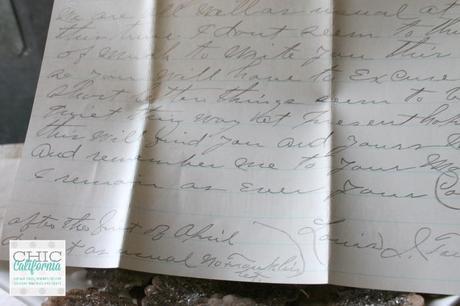 We are all well as usual at
this time I dont seem to th
of much to write you this
so you will have to Excuse
short letter things seem to b
quiet this way at present hop
this will find you and yours
and remember me to your
I remain as Ever Your
Louis J.
after the first of April
as usual No Franklin
CHIC
California